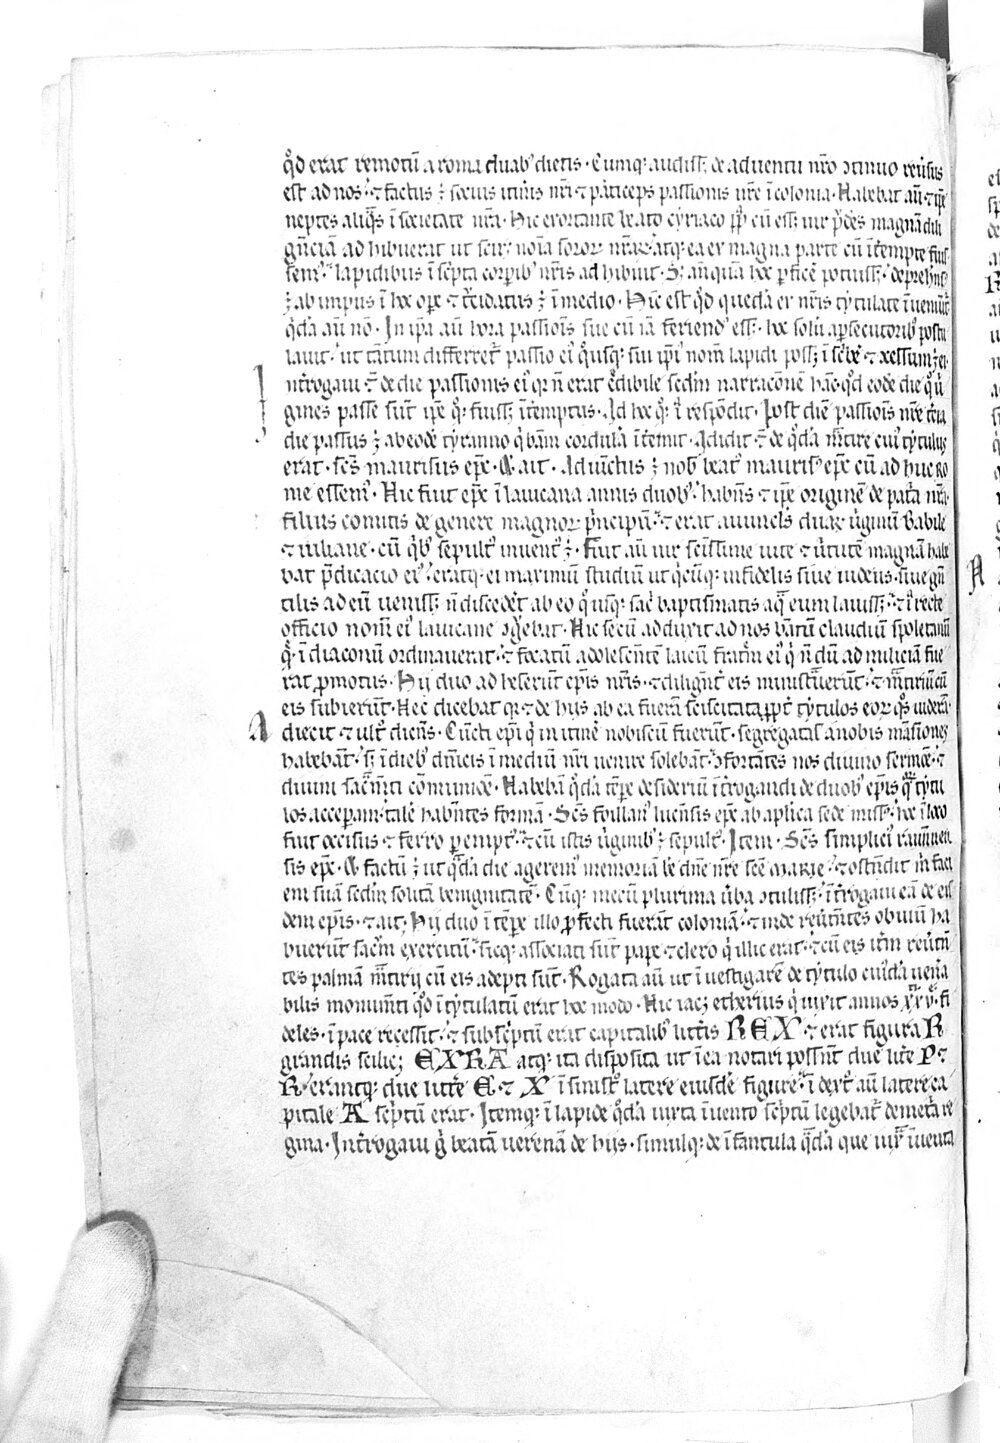 qͦd erat remotū a roma duab' dietis · Cumq; audiss; de aduentu nr̄o ↄtinuo reu̓sus
est ad nos · ⁊ factus ÷ socius itin̓is nr̄i ⁊ pͣticeps passionis nr̄e ī colonia · Habebat aū ⁊ ip̄e
neptes aliqͣs ī societate nr̄a · Hic exortante beato cyriaco pp̄ cū ess; uir pͥdēs magnā dili
gn̄ciam ad hibuerat ut scir; noīa soror nr̄ar · atq; ea ex magna parte cū īt̓empte fuis
sem' · lapidibus ī septa corpib' nr̄is ad hibuit · S; anͣquā hoc pficē potuiss; · deprehn̄s'
÷ ab impiis ī hoc ope ⁊ t̓cidatus ÷ ī medio · Hīc est qͦd quedā ex nr̄is tytulate īuemūt̓
qͦdā aū nō · In ip̄a aū hora passiois sue cū iā feriend' ess; · hoc solū apsecutorib' postu
lauit · ut tātum differret̓ passio ei' qͦusq; sui ip̄i' nom̄ lapidi poss; ī sc̓be̓ · ⁊ ↄcessum ÷ ei·
nt̓rogaui ⁊ de die passionis ei' qr n̄ erat c̓dibile sedm̄ narracōnē hāc · qͦd eode die qͦ uͥ
gines passe sūt ip̄e qͦ; fuiss; īt̓emptus · Ad hec qͦ; īͥ respondit · Post diē passiois nr̄e t̓cia
die passus ÷ ab eode tyranno qͥ bām cordulā īt̓emit · Adidit ⁊ de qͦdā mͬtire cui' tytulus
erat · sc̄s maurisus epc̄ · Et ait · Adiūctus ÷ nob' beat' mauris' epc̄ cū ad huc ro
me essem' · Hic fuit epc̄ ī lauicana annis duob' · habn̄s ⁊ ip̄e originē de patͥa nr̄a
filius comitis de genere magnor pͥncipū · ⁊ erat auuncl̄s duar uͥginū babile
⁊ iuliane · cū qͥb' sepult' inuent' ÷ · Fuit aū uir sc̄issime uite ⁊ uͥtutē magnā habe
bat p̄dicacio ei' · eratq; ei maximū studiū ut qͥcūq; infidelis siue iudeus · siue gn̄
tilis ad eū ueniss; n̄ disced̓et ab eo qͦusq; sac̓ baptismatis aqͣ eum lauiss; · ⁊ īͥ recte
officio nom̄ ei' lauicane ↄg̓ebat · Hic secū adduxit ad nos bātū claudiū spoletanū
qͥ īdiaconū ordinauerat · ⁊ focatū adolescentē laicū fratr̄m ei' qͥ n̄dū ad miliciā fue
rat pmotus · Hij duo ad heserūt epīs nr̄is · ⁊ dilign̄t̓ eis ministͣuerūt · ⁊ mͣtiriū cū
eis subierūt · Hec dicebat qr ⁊ de hijs ab ea fuerā sciscitata ppt̓ tytulos eor qͦs uiderā
Adiecit ⁊ ult̓ dicēs · Cūcti epī qͥ in itinē nobiscū fuerūt · segregatas a nobis māsiones
habebāt · s; ī dieb' dn̄icis ī mediū nr̄i uenire solebāt · ↄfortātes nos diuino sermoē · ⁊
diuini sacͣmti cōmunioē · Habebā qͦdā tēpe desideriū īt̓rogandi de duob' epīs qͦr tytu
los acceperam · tale habn̄tes formā · Sc̄s foillan' lucensis epc̄ ab aplica sede miss' · hoc ī loco
fuit occisus ⁊ ferro pempt' · ⁊ cū istis uͥginib' ÷ sepult' · Item · Sc̄s simplici' rauuneu
sis epc̄ · Et factū ÷ ut qͣdā die agerem' memoriā be dn̄e nr̄e sce̅ MARIE · ⁊ ostn̄dit m̄ faci
em suā sedm̄ solitā benignitatē · Cūq; mecū plurima ûba ↄtuliss; · īt̓rogaui eā de eis
dem epīs · ⁊ ait · Hij duo ī tēpe illo pfecti fuerāt coloniā · ⁊ inde reu̓tn̄tes obuiū ha
buerūt sac̄m exercitū · sicq; associati sūt pape ⁊ clero qͥ illic erat · ⁊ cū eis it̓m reu̓tn̄
tes palmā mͣtirij cū eis adepti sūt · Rogata aū ut īuestigarē de tytulo cui'dā uen̓a
bilis monumn̄ti qͦd ītytulatū erat hoc modo · Hic iac; etherius qͥ uixit annos xxv · fi
deles · ī pace recessit · ⁊ subsc̓ptū erat capitalib' litt̓is REX · ⁊ erat figura R
grandis scilic; EXRA atq; ita disposita ut ī ea notari possn̄t due litt̓e P ⁊
R · erantq; due litt̓e E · ⁊ X ī sinist̓o latere eiusdē figure · ī dext̓o aū latere ca
pitale A sc̓ptū erat · Itemq; ī lapide qͦdā iuxta īuento sc̓ptū legebat̓ demet̓a re
gina · Int̓rogaui gͦ beatā uerenā de hijs · simulq; de īfantula qͣdā que iuxͣ īuenta